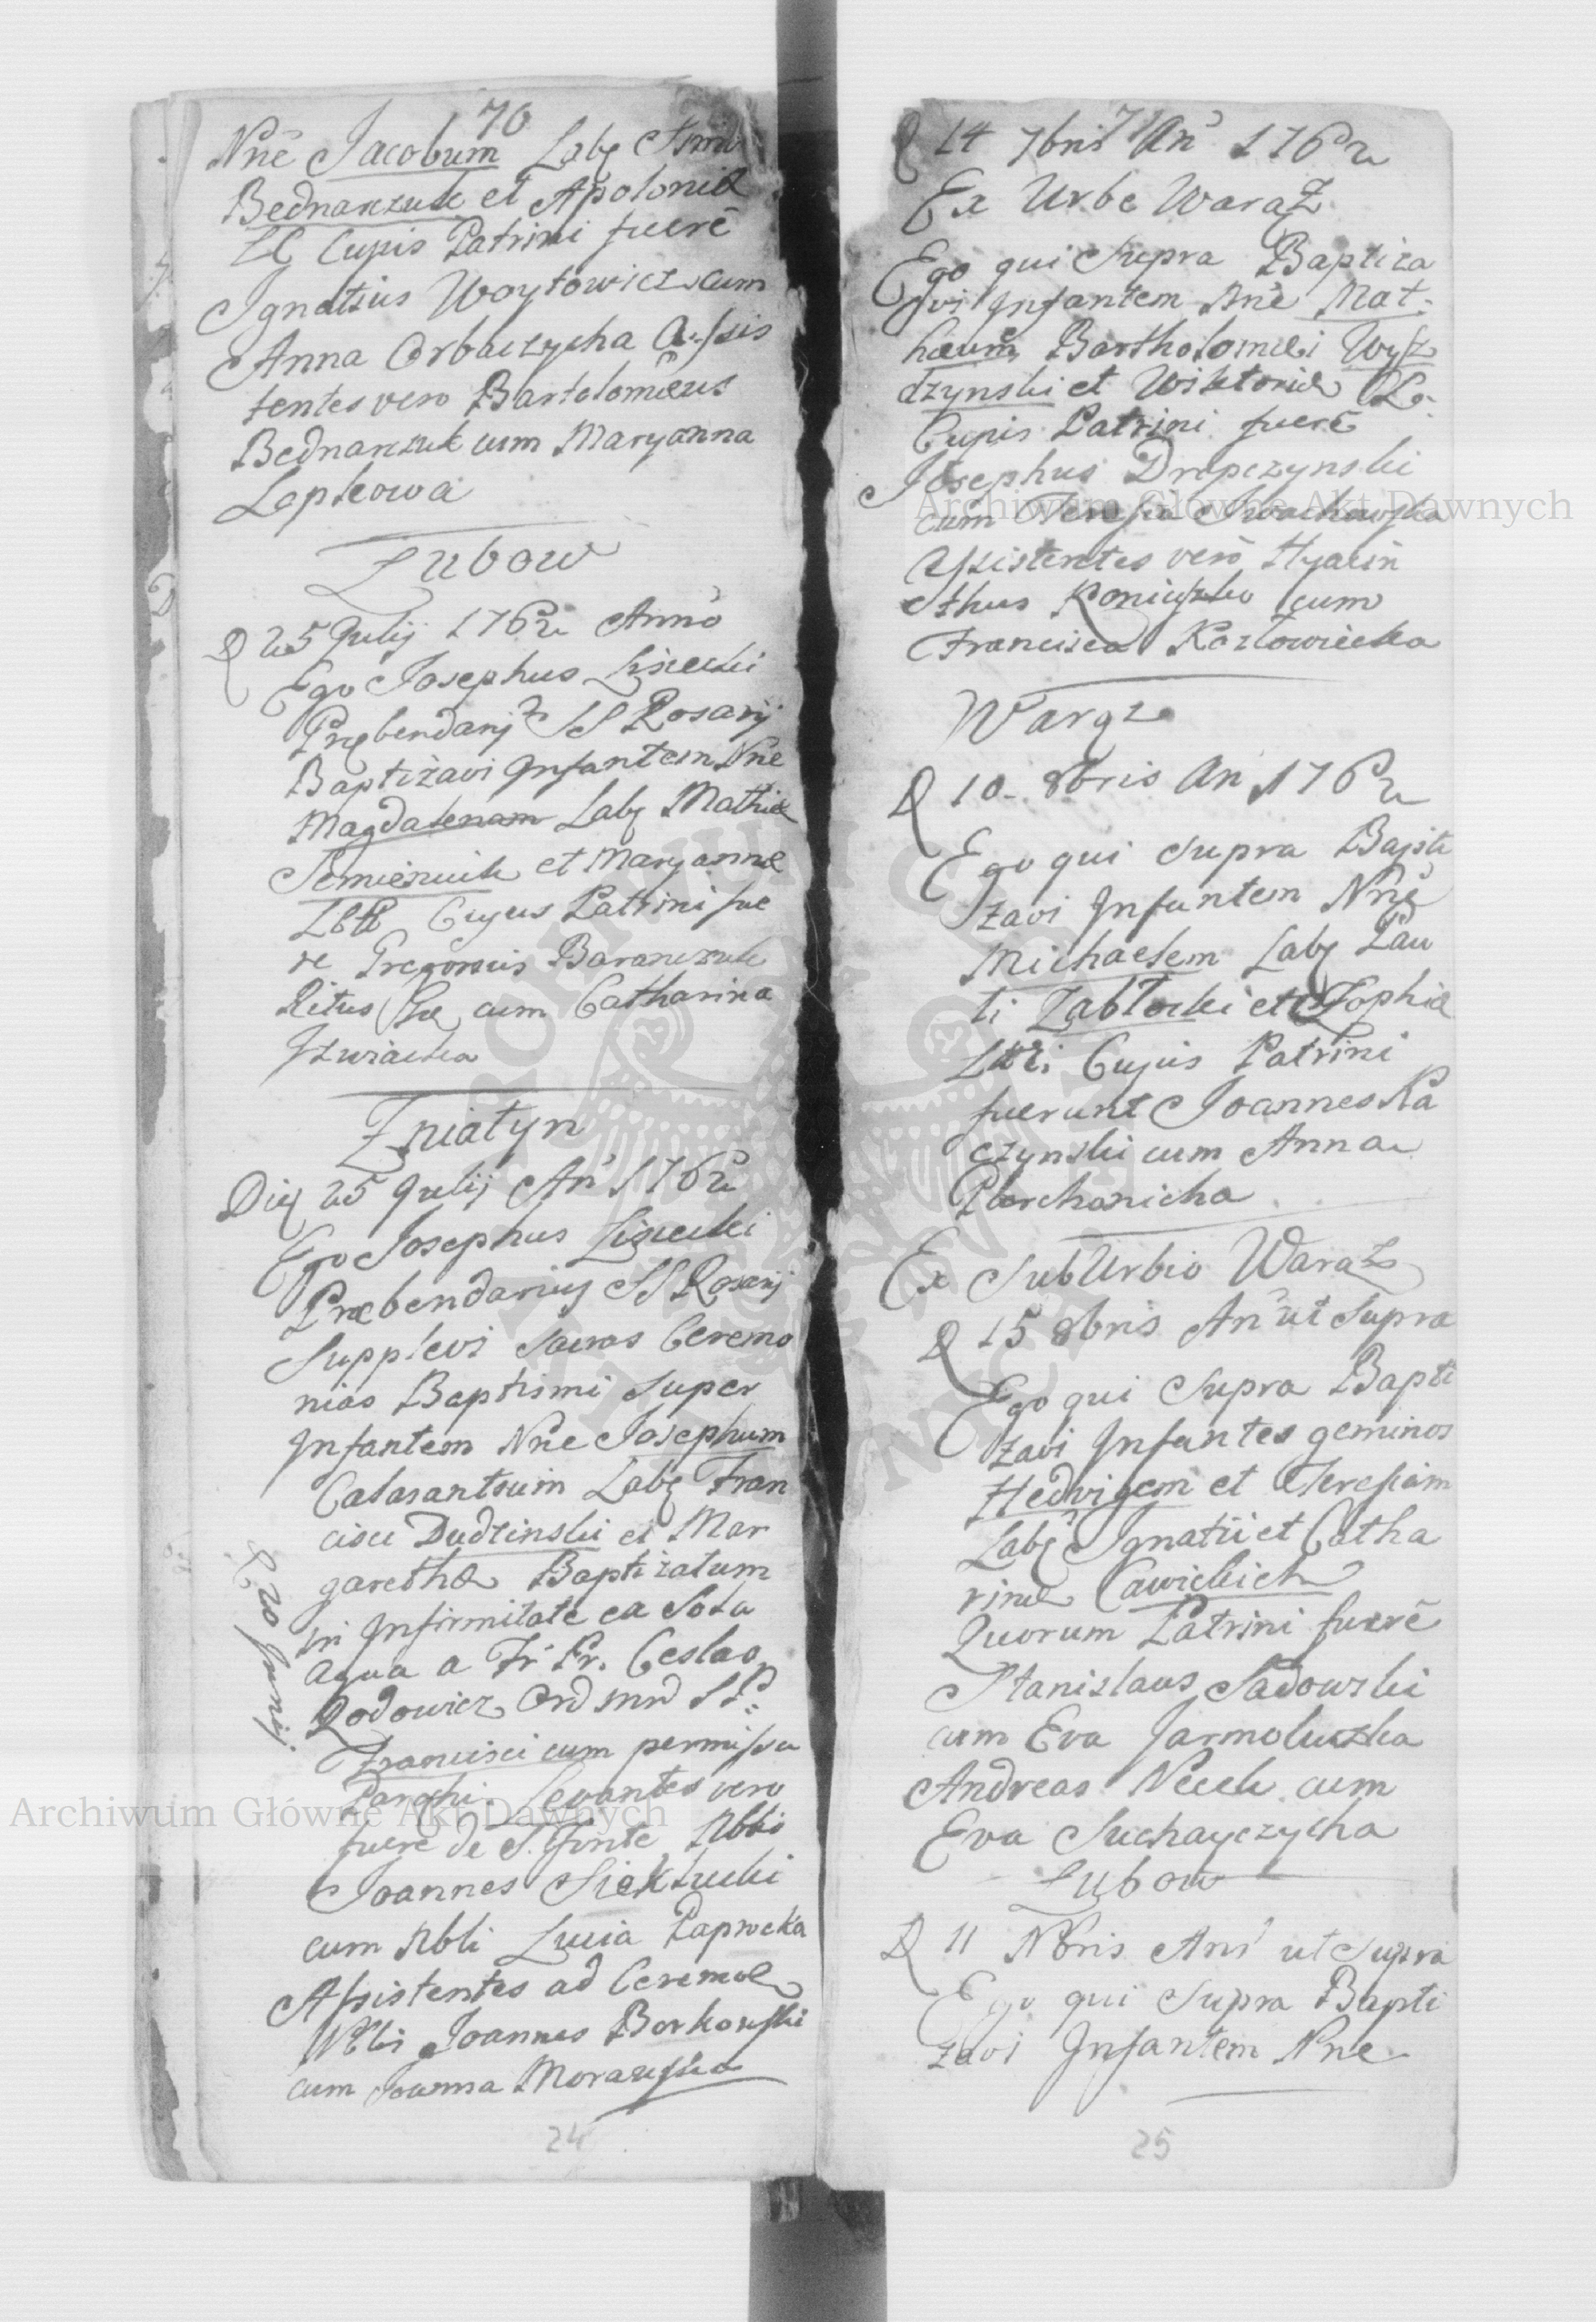 70
Nnē Jacobum Laby
Bednarczuk et Apoloniæ
LC Cujus Patrini fuerē
Ignatius Woytowicz cum
Anna Gorbaczycha Assis
tentes vero Bartolomæus
Bednarczuk cum Maryanna
Lopkowa
Zubow
D 25 Julij 1762 Anno
Ego Josephus Lisiecki
Præbendarj SS Rosarij
Baptizavi Infantem Nne
Magdalenam Laby Mathiæ
et Maryannæ
Cuyus Patrini fue
re Gregorius Baranczuk
Ritus Græ cum Catharina
Zniatyn
Die 25 Julij An 1762
Ego Josephus Lisiecki
Præbendarius SS Rosarij
Supplevi Sacras Ceremo
nias Baptismi super
Infantem Nne Josephum
Calasantium Laby Fran
cisci Dudzinski et Mar
garethæ Baptizatum
in Infirmitate ex Sola
aqua a Fr Pr. Ceslao
Rodowicz Ord SP:
Francisci cum permissu
Parochi. Levantes vero
fuere de S. Fonte
Joannes
cum Lucia Paprocka
Assistentes ad
Joannes Borkowski
cum Joanna Morawska
D 20 Junij.
24
71
D 14 7bris An 1762
Ex Urbe Waraz
Ego qui Supra Baptiza
vi Infantem Nne Mat:
hæum Bartholomæi Wysz
dzynski et Wiktoriæ
Cujus Patrini fuerē
Josephus Drepczynski
cum Teresia
Assistentes vero Hyacin
thus cum
Francisca Kozlowiecka
Waręz
D 10 8bris An 1762
Ego qui Supra Bapti
zavi Infantem Nne
Michaelem Laby Pau
li Zablocki et Zophiæ
Cujus Patrini
fuerunt Joannes Ra
czynski cum Anna
Ex SubUrbio Waraz
D 15 8bris An ut Supra
Ego qui Supra Bapti
zavi Infantes geminos
Hedvigem et Teresiam
Laby Ignatii et Catha
rinæ Cawickich
Quorum Patrini fuerē
Stanislaus Sadowski
cum Eva Jarmoluczka
Andreas cum
Eva Suchayczycha
Zubow
D 11 Nbris An ut Supra
Ego qui Supra Bapti
zavi Infantem Nne
25
Archiwum Główne Akt Dawnych
Archiwum Główne Akt Dawnych